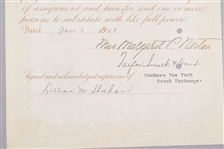 of assignment and transfer, and one or more
persons to substitute with like full power.
Dated Jan 1921
Mrs Margaret P.
Taylor, Smith &
Members New York
Stock Exchange.
Signed and acknowledged in presence of
Lillian M.